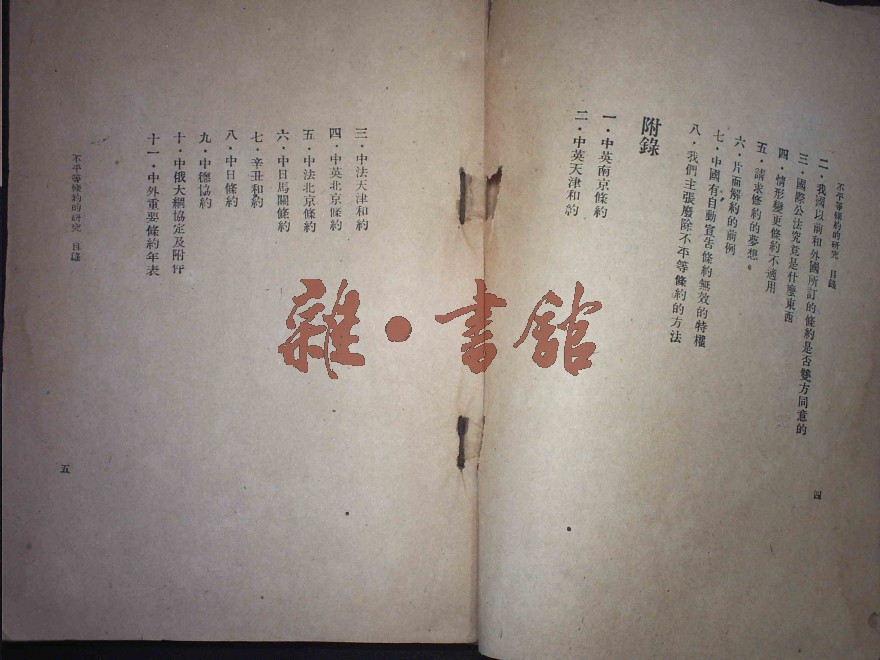 不平等條約的研究 目錄
二．我國以前和外國所訂的條約是否雙方同意的
三．國際公法究竟是什麼東西
四．情形變更條約不適用
五．請求修約的夢想
六．片面解約的前例
七．中國有自動宣告條約無效的特權
八．我們主張廢除不平等條約的方法
附錄
一．中英南京條約
二．中英天津和約
四
三．中法天津和約
四．中英北京條約
五．中法北京條約
六．中日馬關條約
七．辛丑和約
八．中日條約
九．中德協約
十．中俄大綱協定及附件
十一．中外重要條約年表
不平等條約的研究 目錄
五
雜●書館